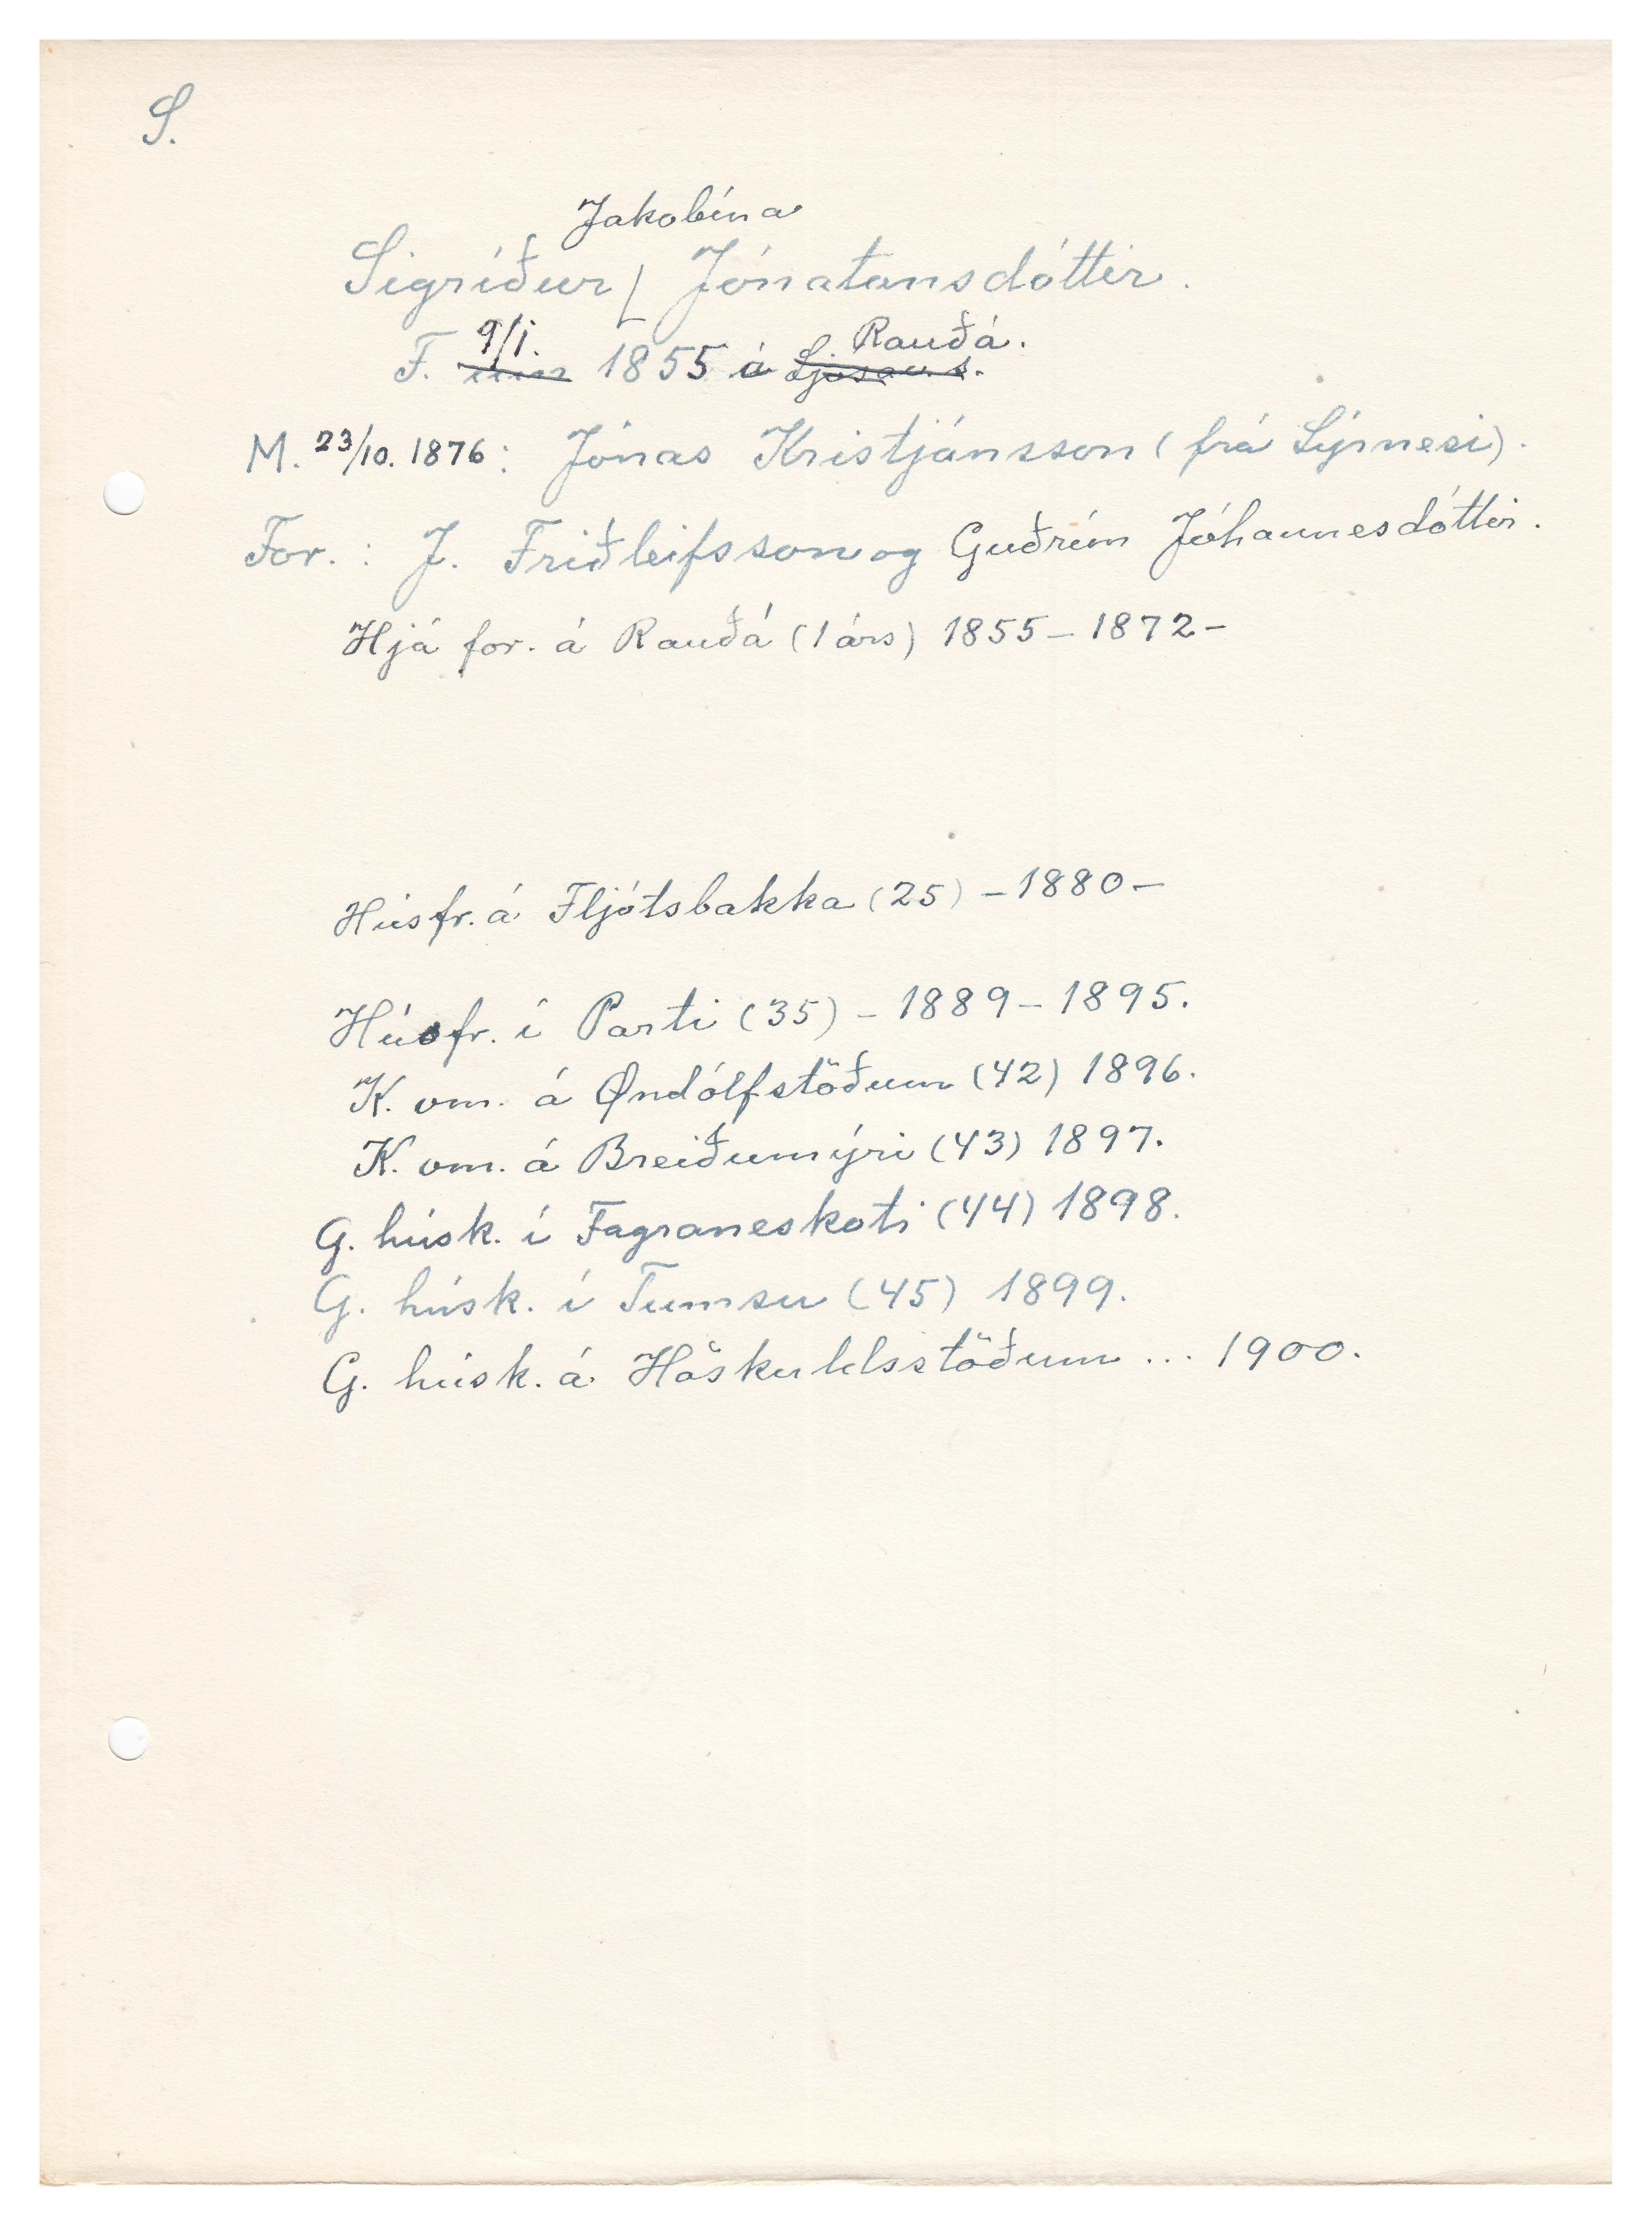 S.
Jakobína
Sigríður Jónatansdóttir.
9/1. Rauðá.
F. 1855 á Ljósav.s.
M. 23/10. 1876: Jónas Kristjánsson (frá Sýrnesi).
For.: J. Friðleifsson og Guðrún Jóhannesdóttir.
Hjá for. á Rauðá (1 árs) 1855 – 1872 –
Húsfr. á Fljótsbakka (25) – 1880 –
Húsfr. í Parti (35) – 1889 – 1895.
K. vm. á Øndólfstöðum (42) 1896.
K. vm. á Breiðumýri (43) 1897.
G. húsk. í Fagraneskoti (44) 1898.
G. húsk. í Tumsu (45) 1899.
G. húsk. á Höskuldsstöðum ... 1900.